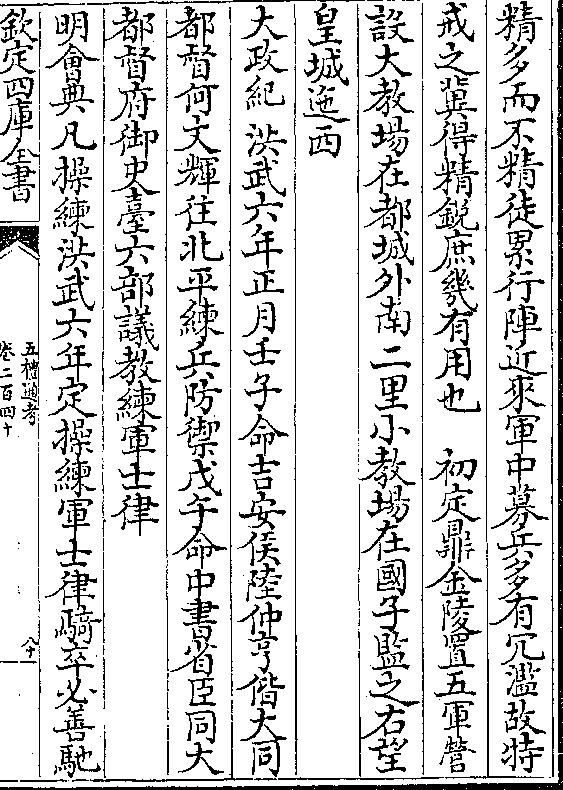 精多而不精徒累行陣近來軍中募兵多有冗濫故特
戒之冀得精銳庶幾有用也　初定鼎金陵置五軍營
設大教場在都城外南二里小教場在國子監之右望
皇城迤西
大政紀　洪武六年正月壬子命吉安侯陸仲亨偕大同
都督何文輝往北平練兵防禦戊午命中書省臣同大
都督府御史臺六部議教練軍士律
明會典凡操練洪武六年定操練軍士律騎卒必善馳
欽定四庫全書
五禮通考
卷二百四十
八十